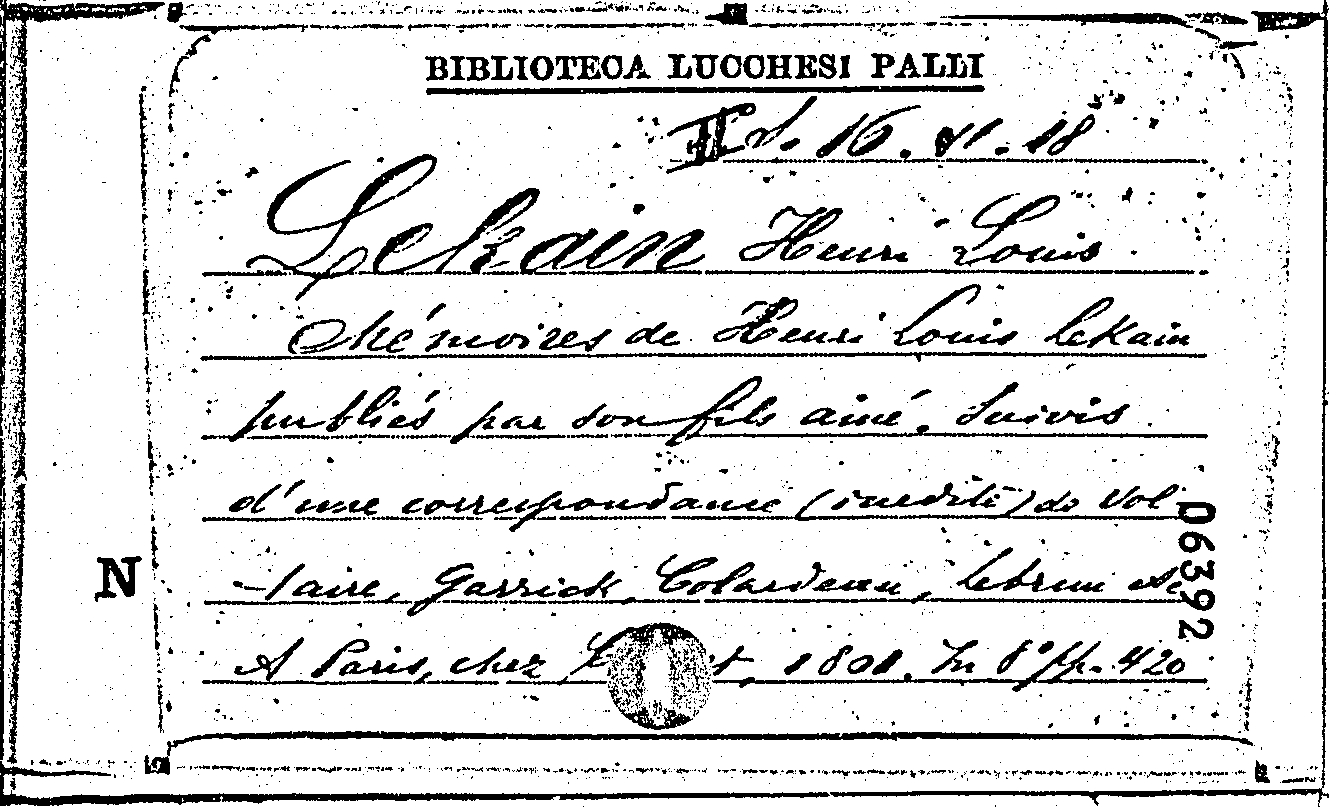 BIBLIOTECA LUCCHESI PALLI
II S. 16. VI. 18
Lekain Henri Louis
Mémoires de Henri Louis Lekain
publiés par son fils ainé. Suivis
d'une correspondance (inedite) de Vol
taire, Garrick, Colardeau, Lebrun
A Paris, chez 1801. In 8° pp. 420
N
06392